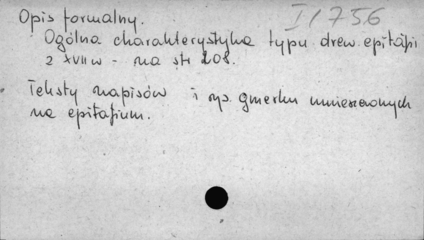 Opis formalny.
I/756
Ogólna charakterystyka typu drew. epitafii
z XVII w - na str 208.
Teksty napisów i rys. gmerku umieszczonych
na epitafium.